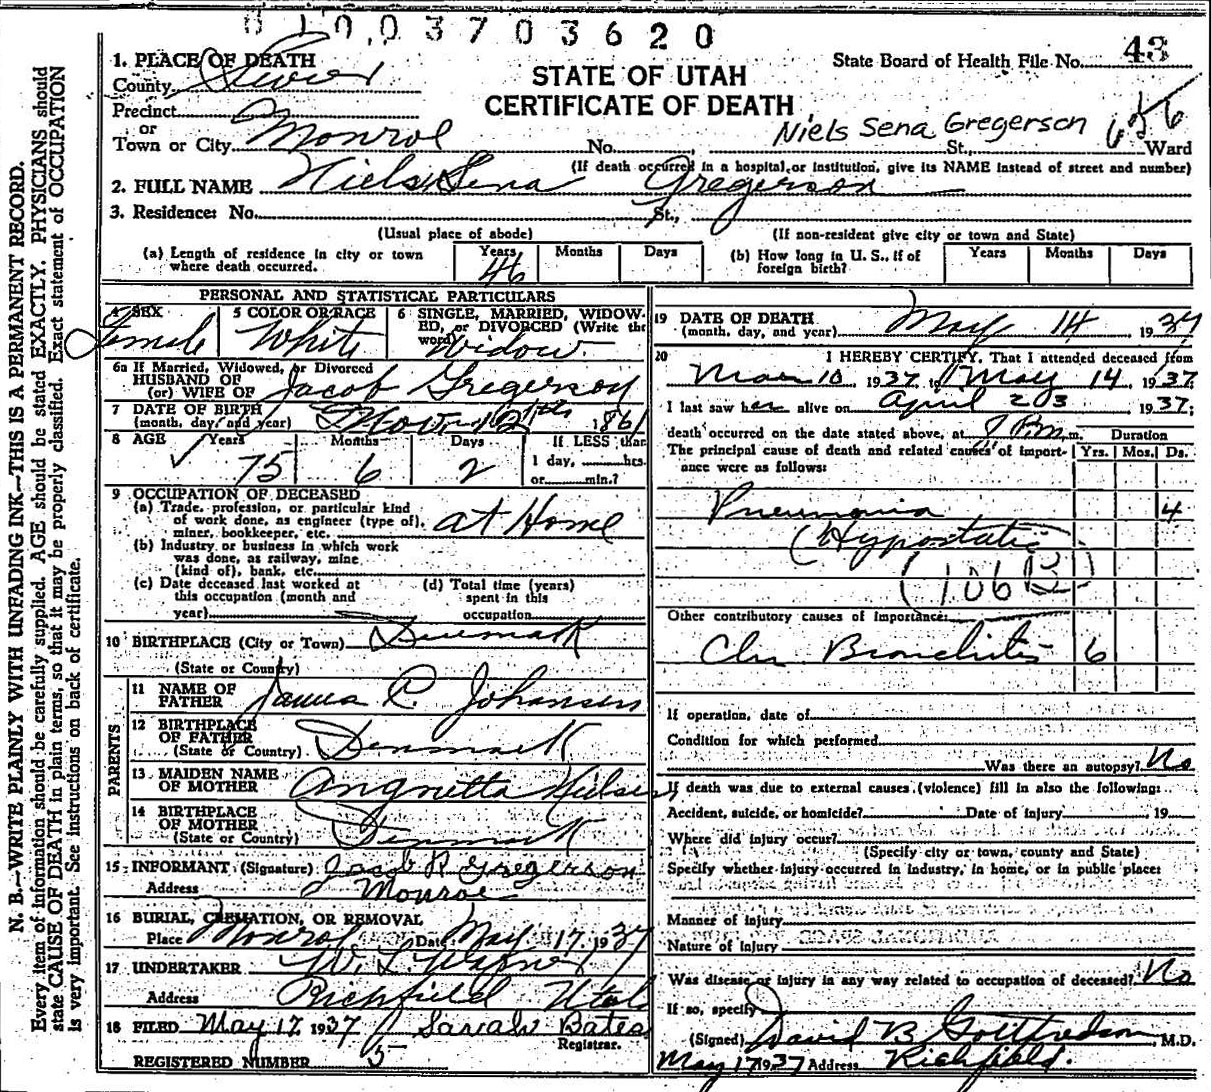 01003703620
1. PLACE OF DEATH
State Board of Health File No. 43
County Sevier
STATE OF UTAH
CERTIFICATE OF DEATH
Precinct
or
Town or City Monroe No. St., Ward
Niels Sena Gregerson
(If death occurred in a hospital or institution, give its NAME instead of street and number)
2. FULL NAME Niels Sena Gregerson
3. Residence: No. St.,
(Usual place of abode) (If non-resident give city or town and State)
(a) Length of residence in city or town where death occurred. Years 46 Months Days
(b) How long in U. S., if of foreign birth? Years Months Days
PERSONAL AND STATISTICAL PARTICULARS
4 SEX Female
5 COLOR OR RACE White
6 SINGLE, MARRIED, WIDOWED, or DIVORCED (Write the word) Widow
6a If Married, Widowed, or Divorced
HUSBAND OF
(or) WIFE OF Jacob Gregerson
7 DATE OF BIRTH
(month, day, and year) Nov 12th 1861
8 AGE Years 75 Months 6 Days 2 If LESS than
1 day, hrs.
or min.?
9 OCCUPATION OF DECEASED
(a) Trade, profession, or particular kind
of work done, as engineer (type of),
miner, bookkeeper, etc. at Home
(b) Industry or business in which work
was done, as railway, mine
(kind of), bank, etc.
(c) Date deceased last worked at
this occupation (month and
year)
(d) Total time (years)
spent in this
occupation
10 BIRTHPLACE (City or Town) Denmark
(State or Country)
PARENTS
11 NAME OF
FATHER Johansen
12 BIRTHPLACE
OF FATHER
(State or Country) Denmark
13 MAIDEN NAME
OF MOTHER Angnetta Nielsen
14 BIRTHPLACE
OF MOTHER
(State or Country) Denmark
15 INFORMANT (Signature) Jacob P Gregerson
Address Monroe
16 BURIAL, CREMATION, OR REMOVAL
Place Monroe Date May 17, 1937
17 UNDERTAKER
Address Richfield Utah
18 FILED May 17 1937 Sarah Bates
Registrar.
REGISTERED NUMBER 5
19 DATE OF DEATH
(month, day, and year) May 14 1937
20 I HEREBY CERTIFY, That I attended deceased from
Mar 10 1937 to May 14 1937
I last saw her alive on April 23 1937;
death occurred on the date stated above, at m. Duration
The principal cause of death and related causes of importance were as follows: Yrs. Mos. Ds.
Pneumonia 4
(Hypostatic
(106B)
Other contributory causes of importance:
Chr Bronchitis 6
If operation, date of
Condition for which performed
Was there an autopsy? No
If death was due to external causes (violence) fill in also the following:
Accident, suicide, or homicide? Date of injury 19
Where did injury occur?
(Specify city or town, county and State)
Specify whether injury occurred in industry, in home, or in public place:
Manner of injury
Nature of injury
Was disease or injury in any way related to occupation of deceased? No
If so, specify
(Signed) David B Gottfredson, M.D.
May 17 1937 Address Richfield.
N. B.—WRITE PLAINLY WITH UNFADING INK—THIS IS A PERMANENT RECORD.
Every item of information should be carefully supplied. AGE should be stated EXACTLY. PHYSICIANS should
state CAUSE OF DEATH in plain terms, so that it may be properly classified. Exact statement of OCCUPATION
is very important. See instructions on back of certificate.